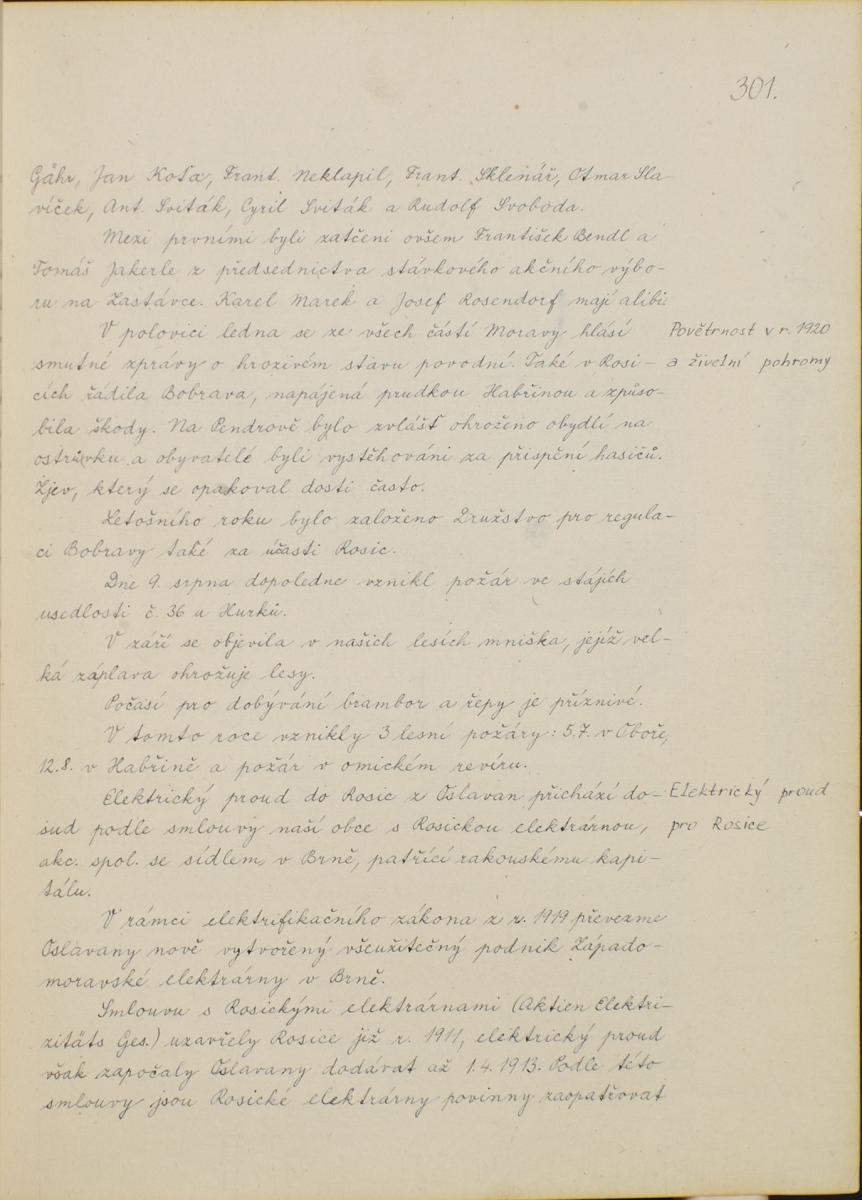 301.
Gåhr, Jan Koťa, Frant. Neklapil, Frant. Sklenář, Otmar Sla-
víček, Ant. Sviták, Cyril Sviták a Rudolf Svoboda.
Mezi prvními byli zatčeni ovšem František Bendl a
Tomáš Jakerle z předsednictva stávkového akčního výbo-
ru na Zastávce. Karel Marek a Josef Rosendorf mají alibi.
V polovici ledna se ze všech částí Moravy hlásí
Povětrnost v r. 1920
smutné zprávy o hrozivém stavu povodní. Také v Rosi-
a živelní pohromy
cích řádila Bobrava, napájená prudkou Habřinou a způso-
bila škody. Na Pendrově bylo zvlášť ohroženo obydlí na
ostrůvku a obyvatelé byli vystěhováni za přispění hasičů.
Zjev, který se opakoval dosti často.
Letošního roku bylo založeno Družstvo pro regula-
ci Bobravy také za účasti Rosic.
Dne 9. srpna dopoledne vznikl požár ve stájích
usedlosti č. 36 u Hurků.
V září se objevila v našich lesích mniška, jejíž vel-
ká záplava ohrožuje lesy.
Počasí pro dobývání brambor a řepy je příznivé.
V tomto roce vznikly 3 lesní požáry: 5.7. v Oboře,
12.8. v Habřině a požár v omickém revíru.
Elektrický proud do Rosic z Oslavan přichází do-
Elektrický proud
sud podle smlouvy naší obce s Rosickou elektrárnou,
pro Rosice
akc. spol. se sídlem v Brně, patřící rakouskému kapi-
tálu.
V rámci elektrifikačního zákona z r. 1919 převezme
Oslavany nově vytvořený všeužitečný podnik Západo-
moravské elektrárny v Brně.
Smlouvu s Rosickými elektrárnami (Aktien Elektri-
zitäts Ges.) uzavřely Rosice již r. 1911, elektrický proud
však započaly Oslavany dodávat až 1.4.1913. Podle této
smlouvy jsou Rosické elektrárny povinny zaopatřovat